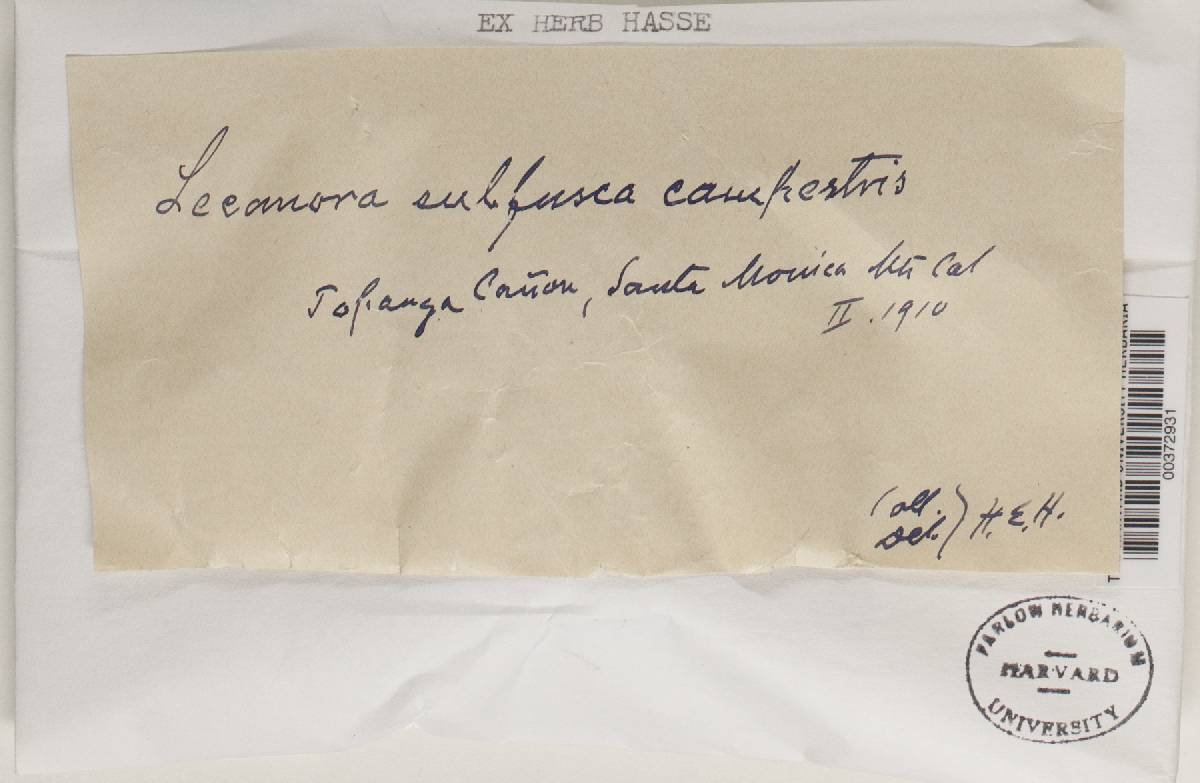 EX HERB HASSE
Lecanora subfusca campestris
Topanga Cañon, Santa Monica Mts Cal
II. 1910
Coll.
Det. } H.E.H.
00372931
FARLOW HERBARIUM
HARVARD
UNIVERSITY